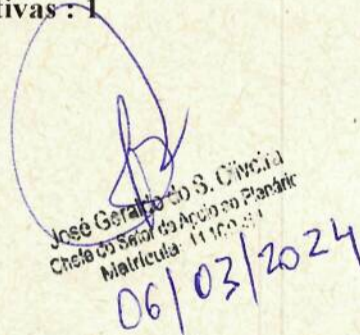 tivas : 1
José Geraldo do S. Oliveira
Chefe do Setor de Apoio ao Plenário
Matrícula: 11.100
06/03/2024